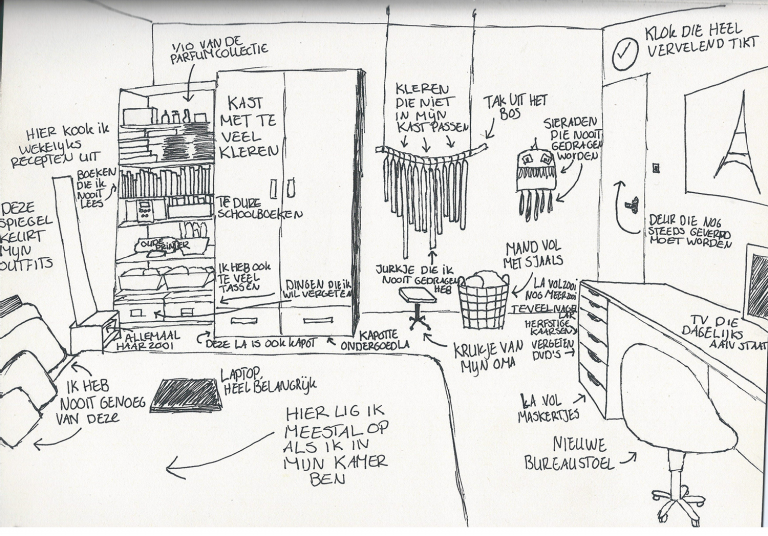 1/10 VAN DE
PARFUMCOLLECTIE
KLOK DIE HEEL
VERVELEND TIKT
KAST
MET TE
VEEL
KLEREN
KLEREN
DIE NIET
IN MIJN
KAST PASSEN
TAK UIT HET
BOS
SIERADEN
DIE NOOIT
GEDRAGEN
WORDEN
HIER KOOK ik
WEKELIJKS
RECEPTEN UIT
BOEKEN
DIE ik
NOOIT
LEES
DEZE
SPIEGEL
KEURT
MIJN
OUTFITS
TE DURE
SCHOOLBOEKEN
DEUR DIE NOG
STEEDS GEVERFD
MOET WORDEN
IK HEB OOK
TE VEEL
TASSEN
DINGEN DIE iK
WIL VERGETEN
JURKJE DIE iK
NOOIT GEDRAGEN
HEB
MAND VOL
MET SJAALS
LA VOL ZOOI
NOG MEER ZOOI
TE VEEL NAGEL
LAK
HERFSTIGE
KAARSEN
VERGETEN
DVD'S
TV DIE
DAGELIJKS
AAN STAAT
ALLEMAAL
HAARZOOI
DEZE LA IS OOK KAPOT
KAPOTTE
ONDERGOEDLA
KRUKJE VAN
MIJN OMA
IK HEB
NOOIT GENOEG
VAN DEZE
LAPTOP,
HEEL BELANGRIJK
LA VOL
MASKERTJES
HIER LIG IK
MEESTAL OP
ALS IK IN
MIJN KAMER
BEN
NIEUWE
BUREAUSTOEL